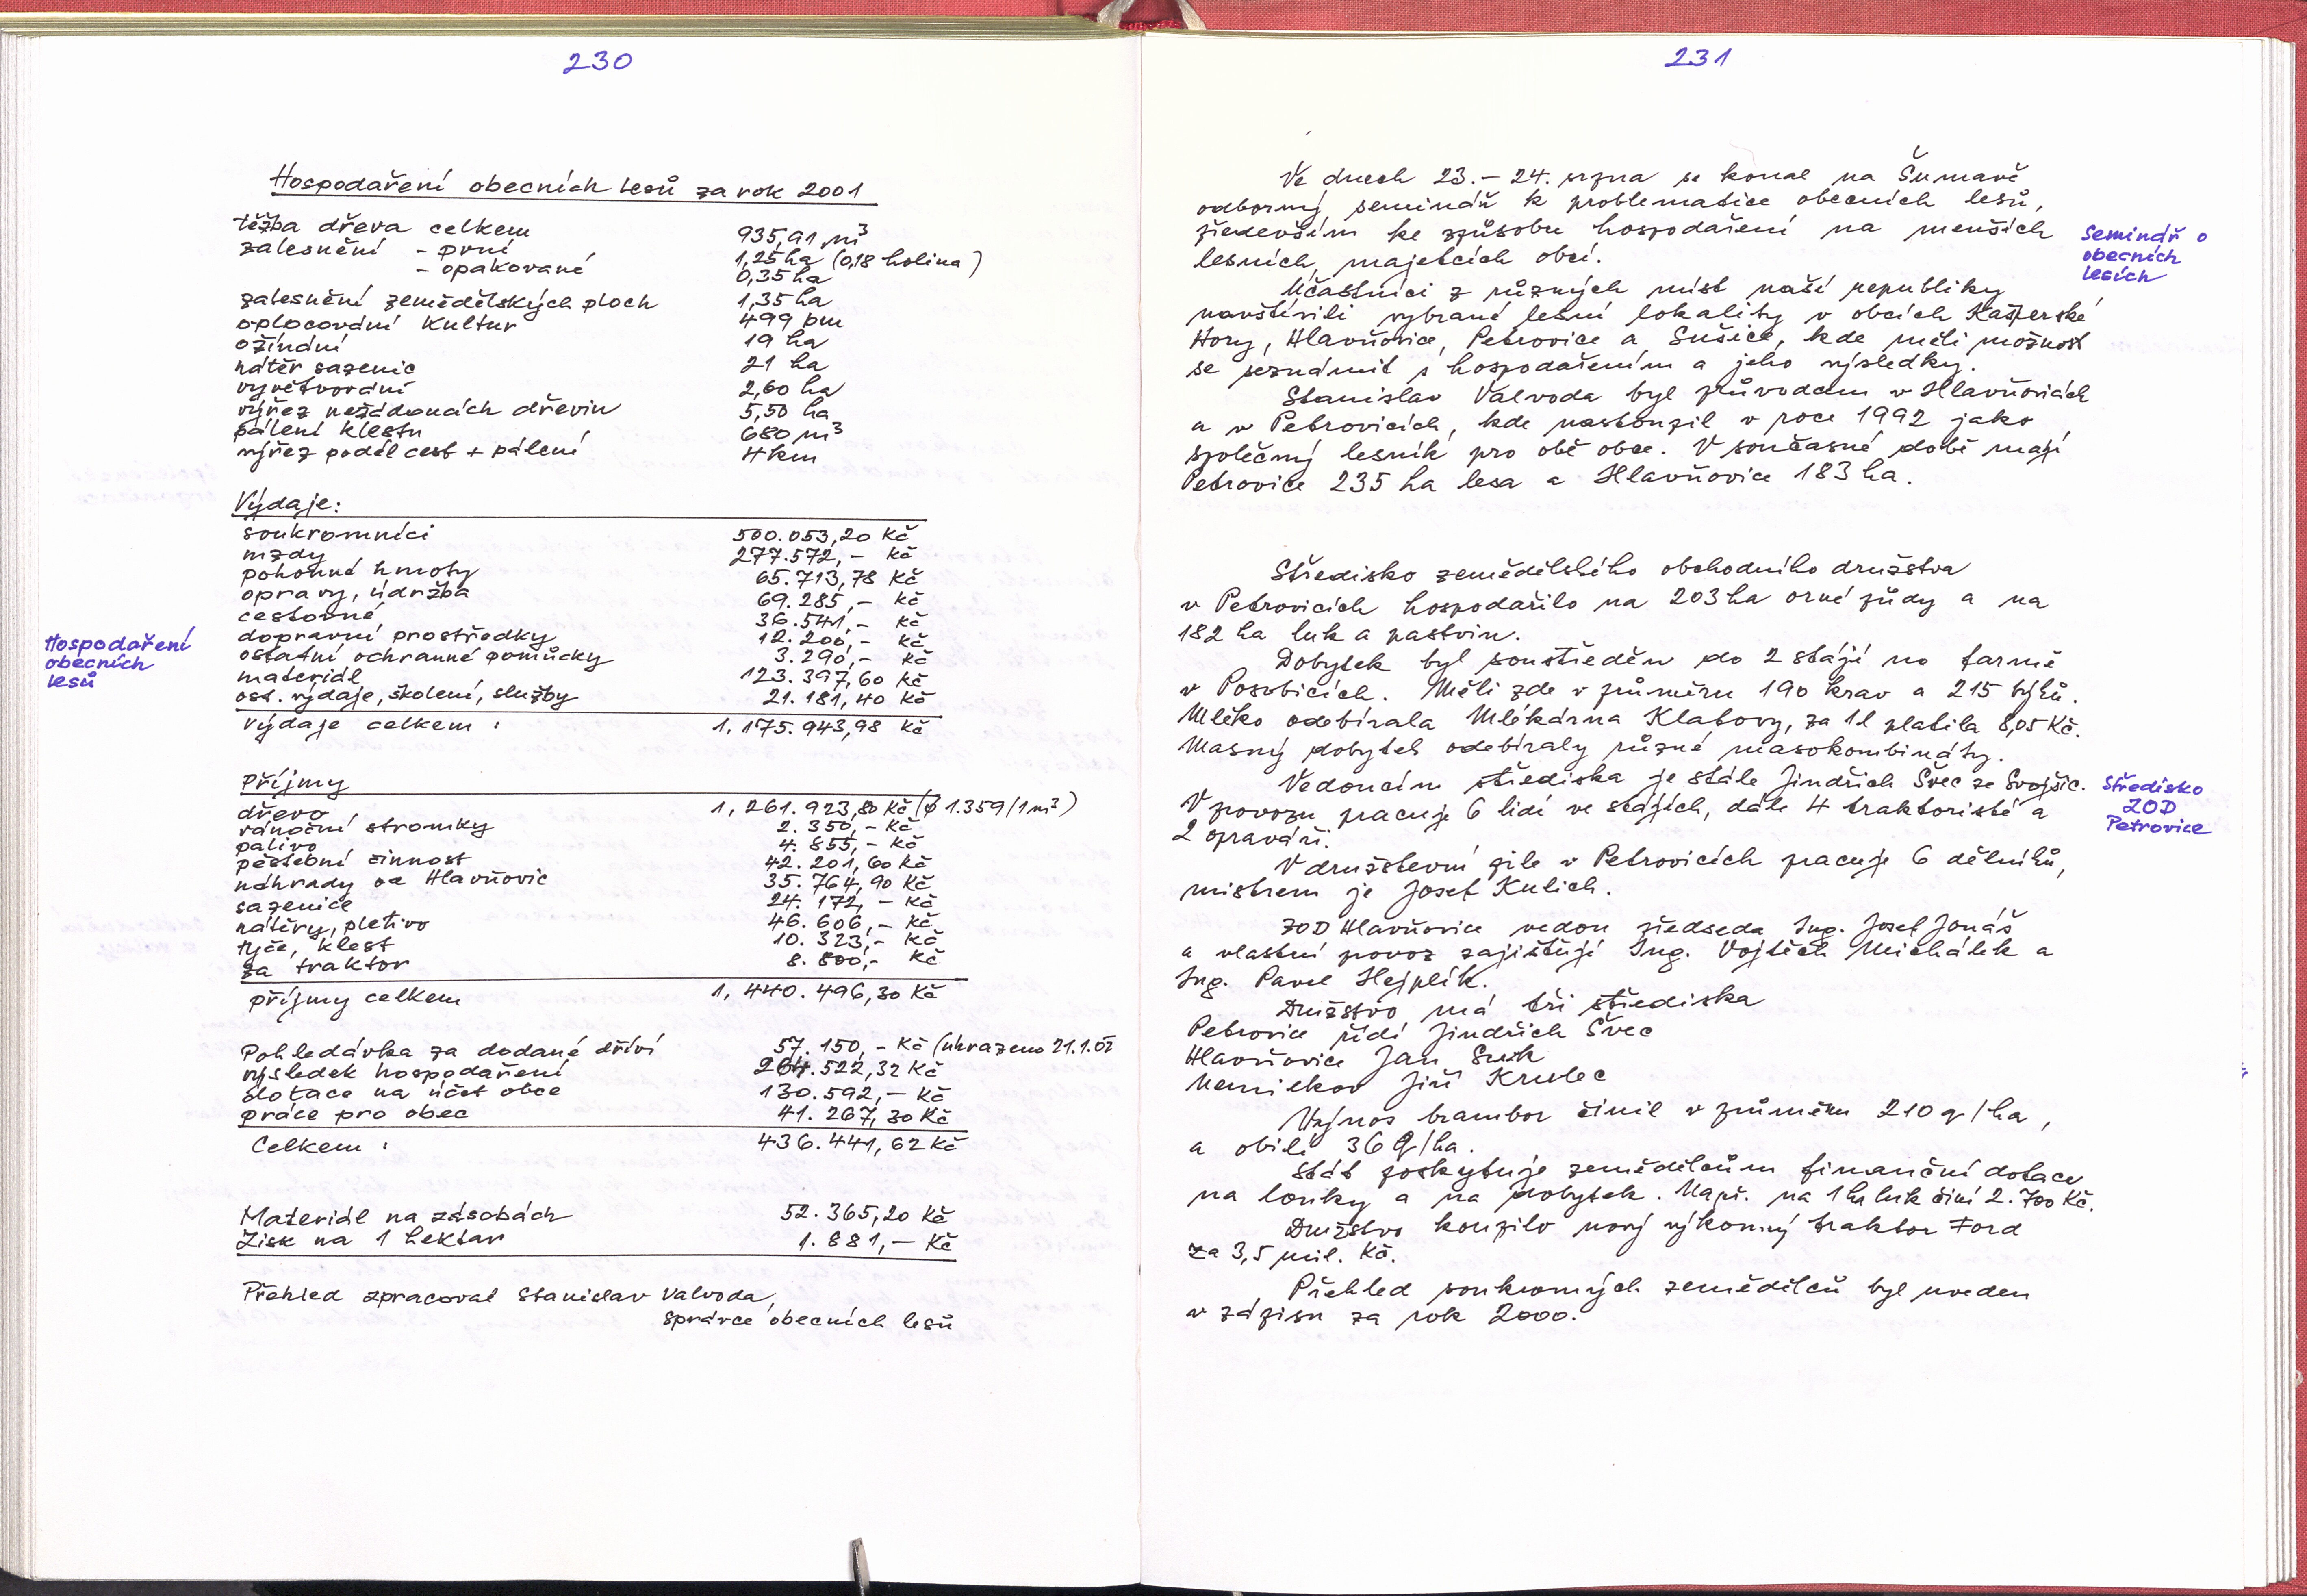 230
Hospodaření obecních lesů za rok 2001
těžba dřeva celkem 935,91 m³
zalesnění - první 1,25 ha (0,18 holina)
- opakované 0,35 ha
zalesnění zemědělských ploch 1,35 ha
oplocování kultur 499 bm
ožínání 19 ha
nátěr sazenic 21 ha
vyvětvování 2,60 ha
výřez nežádoucích dřevin 5,50 ha
pálení klestu 680 m³
výřez podél cest + pálení 4 km
Výdaje:
soukromníci 500.053,20 Kč
mzdy 277.572,- Kč
pohonné hmoty 65.713,78 Kč
opravy, údržba 69.285,- Kč
cestovné 36.541,- Kč
dopravní prostředky 12.200,- Kč
ostatní ochranné pomůcky 3.290,- Kč
materiál 123.397,60 Kč
ost. výdaje, školení, služby 21.181,40 Kč
Výdaje celkem : 1,175.943,98 Kč
Hospodaření
obecních
lesů
Příjmy
dřevo 1,261.923,80 Kč (ø 1.359/1m³)
vánoční stromky 2.350,- Kč
palivo 4.855,- Kč
pěstební činnost 42.201,60 Kč
náhrady od Hlavňovic 35.764,90 Kč
sazenice 24.172,- Kč
nátěry, pletivo 46.606,- Kč
tyče, klest 10.323,- Kč
za traktor 8.800,- Kč
příjmy celkem 1,440.496,30 Kč
Pohledávka za dodané dříví 57.150,- Kč (uhrazeno 21.1.02
výsledek hospodaření 264.522,32 Kč
dotace na účet obce 130.592,- Kč
práce pro obec 41.267,30 Kč
Celkem : 436.441,62 Kč
Materiál na zásobách 52.365,20 Kč
Zisk na 1 hektar 1.881,- Kč
Přehled zpracoval Stanislav Valvoda,
správce obecních lesů
231
Ve dnech 23. - 24. srpna se konal na Šumavě
odborný seminář k problematice obecních lesů,
především ke způsobu hospodaření na menších
lesních majetcích obcí.
Seminář o
obecních
lesích
Účastníci z různých míst naší republiky
navštívili vybrané lesní lokality v obcích Kašperské
Hory, Hlavňovice, Petrovice a Sušice, kde měli možnost
se seznámit s hospodařením a jeho výsledky.
Stanislav Valvoda byl průvodcem v Hlavňovicích
a v Petrovicích, kde nastoupil v roce 1992 jako
společný lesník pro obě obce. V současné době mají
Petrovice 235 ha lesa a Hlavňovice 183 ha.
Středisko zemědělského obchodního družstva
v Petrovicích hospodařilo na 203 ha orné půdy a na
182 ha luk a pastvin.
Dobytek byl soustředěn do 2 stájí na farmě
v Posobicích. Měli zde v průměru 190 krav a 215 býků.
Mléko odebírala Mlékárna Klatovy, za 1l platila 8,05 Kč.
Masný dobytek odebíraly různé masokombináty.
Vedoucím střediska je stále Jindřich Švec ze Svojšic.
V provozu pracuje 6 lidí ve stájích, dále 4 traktoristé a
2 opraváři.
Středisko
ZOD
Petrovice
V družstevní pile v Petrovicích pracuje 6 dělníků,
mistrem je Josef Kulich.
ZOD Hlavňovice vedou předseda Ing. Josef Jonáš
a vlastní provoz zajišťují Ing. Vojtěch Michálek a
Ing. Pavel Hejplík.
Družstvo má tři střediska
Petrovice řídí Jindřich Švec
Hlavňovice Jan
Nemilkov Jiří Krulec
Výnos brambor činil v průměru 210 q/ha,
a obilí 36 q/ha.
Stát poskytuje zemědělcům finanční dotace
na louky a na dobytek. Např. na 1 ha luk činí 2.700 Kč.
Družstvo koupilo nový výkonný traktor Ford
za 3,5 mil. Kč.
Přehled soukromých zemědělců byl uveden
v zápisu za rok 2000.